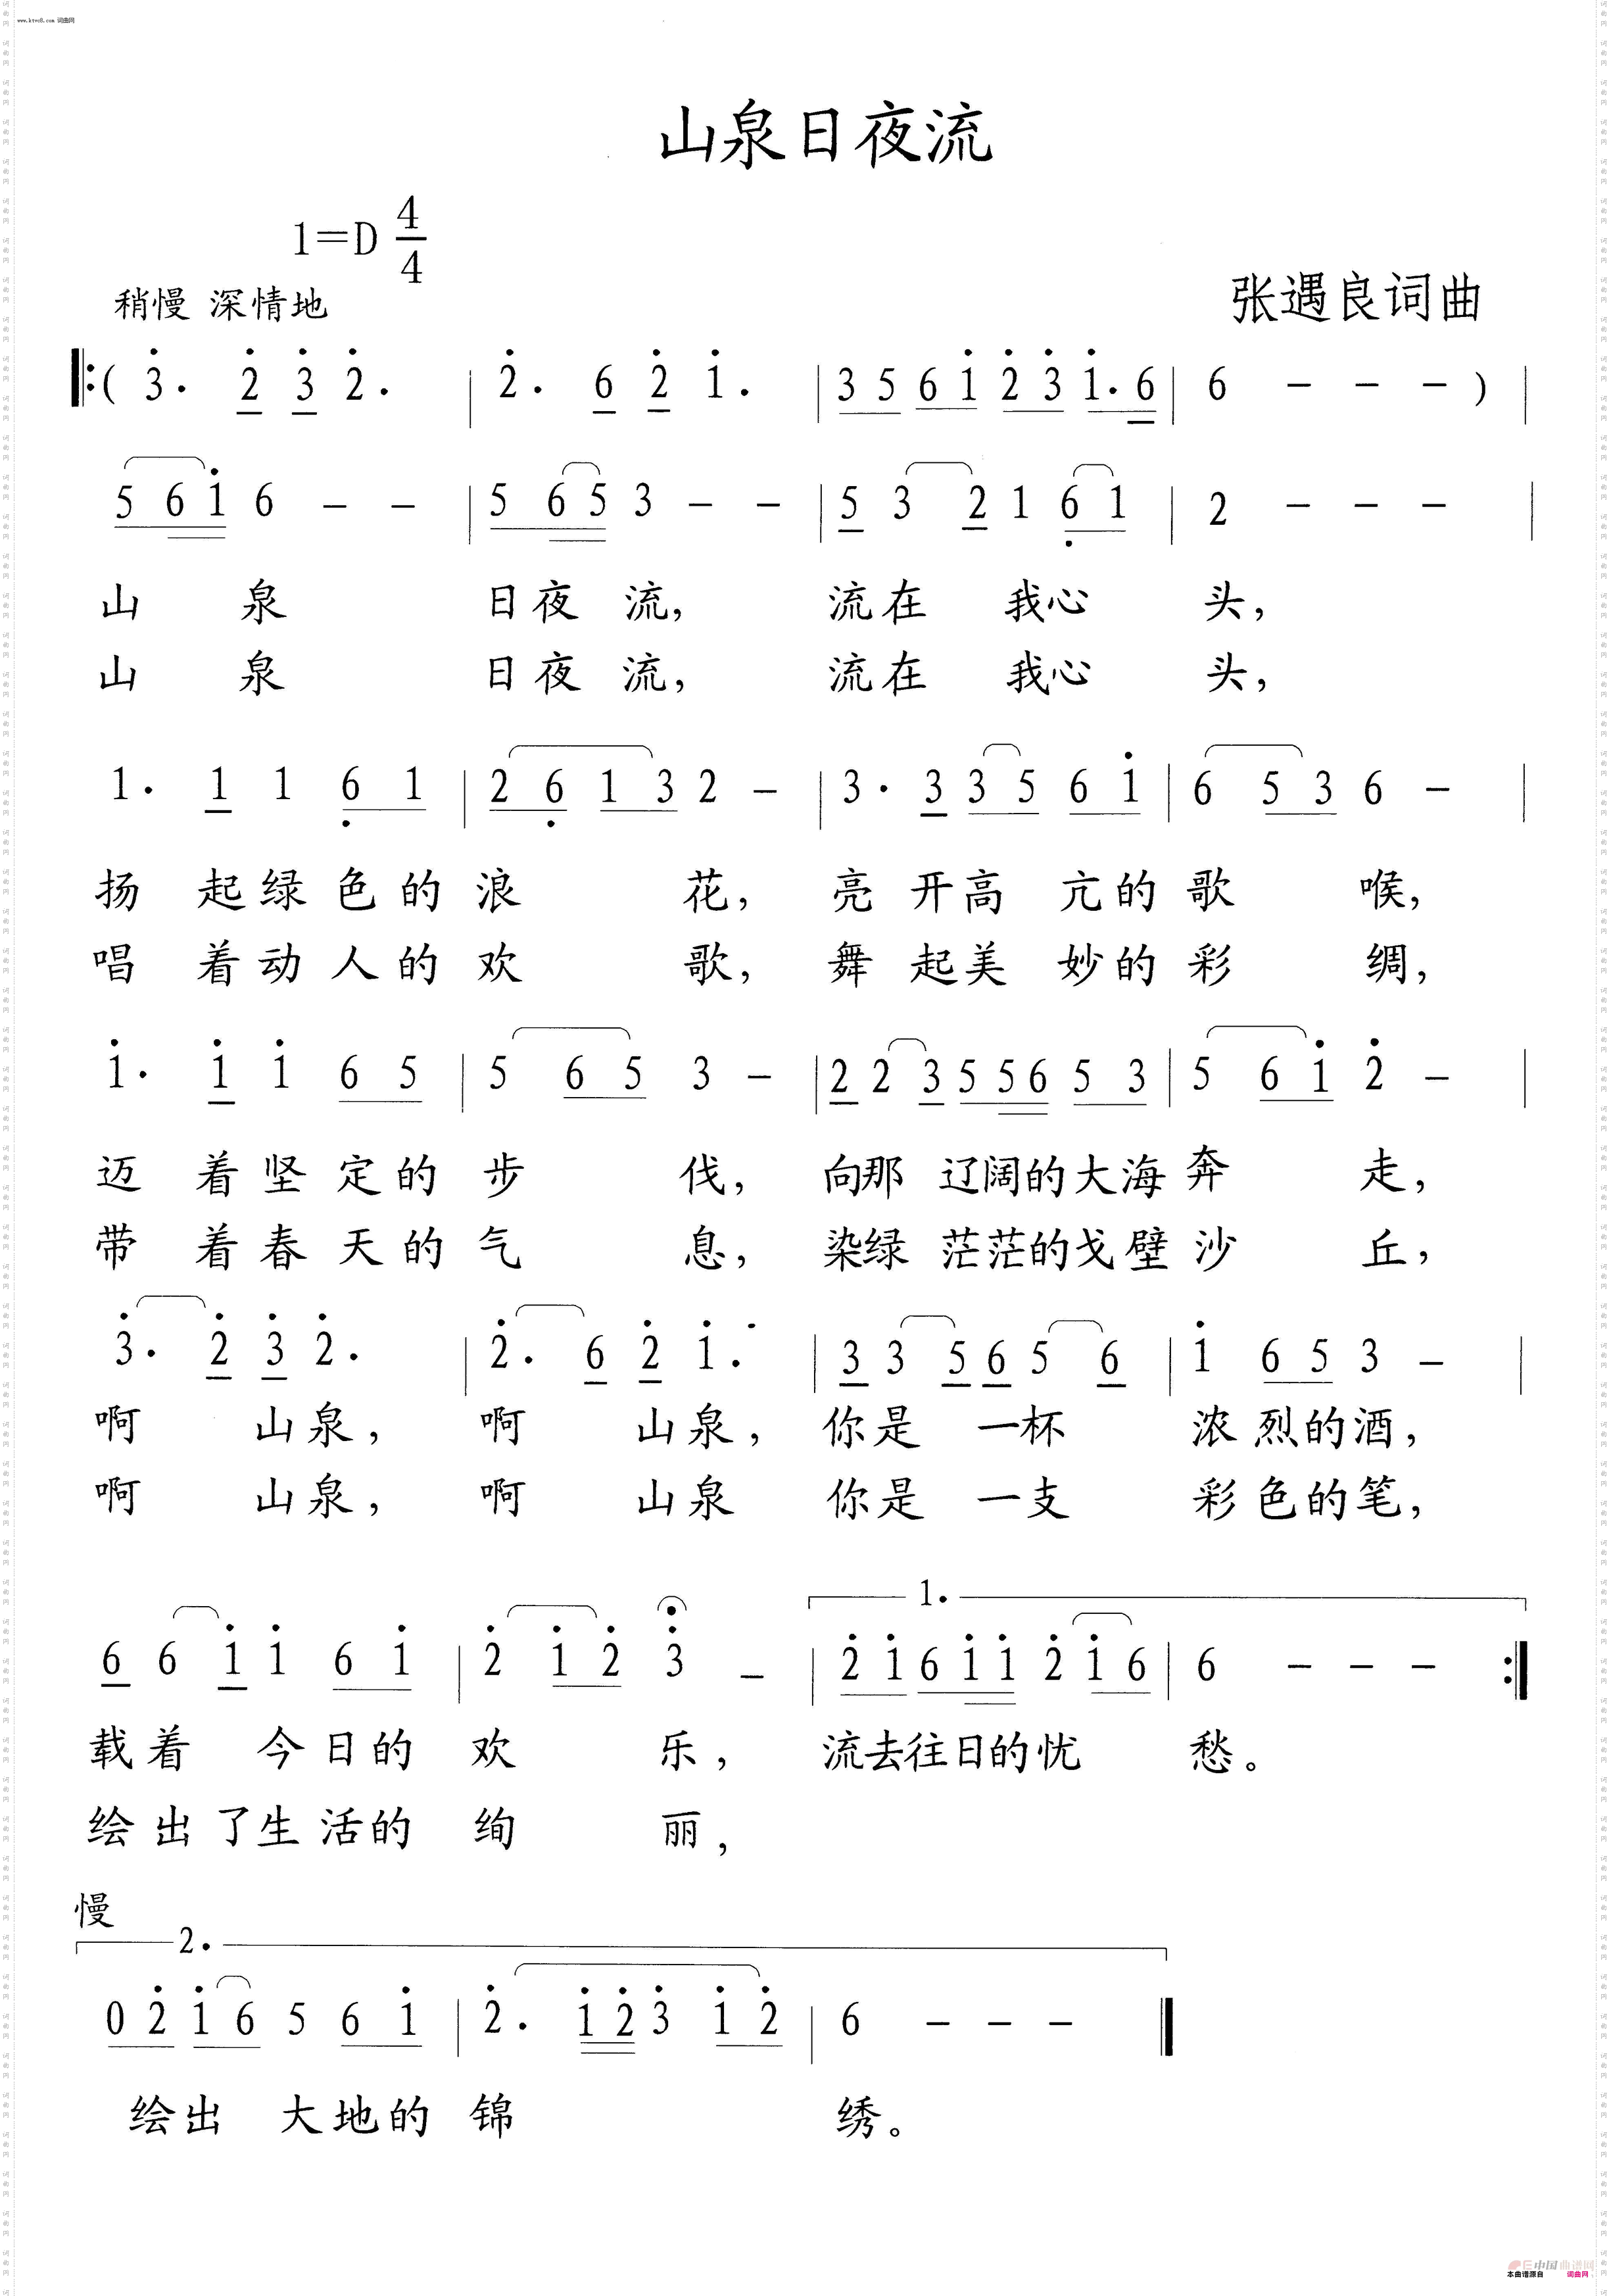 www.ktvc8.com 词曲网
山泉日夜流
1=D 4/4
稍慢 深情地
张遇良词曲
‖:( 3̇. 2̇ 3̇ 2̇. | 2̇. 6 2̇ 1̇. | 3 5 6 1̇ 2̇ 3̇ 1̇. 6 | 6 - - - ) |
5 6 1̇ 6 - - | 5 6 5 3 - - | 5 3 2 1 6̣ 1 | 2 - - - |
山 泉 日夜 流, 流在 我心 头,
山 泉 日夜 流, 流在 我心 头,
1. 1 1 6̣ 1 | 2 6̣ 1 3 2 - | 3. 3 3 5 6 1̇ | 6 5 3 6 - |
扬 起绿 色的 浪 花, 亮 开高 亢的 歌 喉,
唱 着动 人的 欢 歌, 舞 起美 妙的 彩 绸,
1̇. 1̇ 1̇ 6 5 | 5 6 5 3 - | 2 2 3 5 5 6 5 3 | 5 6 1̇ 2̇ -
迈 着坚 定的 步 伐, 向那 辽阔的大海 奔 走,
带 着春 天的 气 息, 染绿 茫茫的戈壁 沙 丘,
3̇. 2̇ 3̇ 2̇. | 2̇. 6 2̇ 1̇. | 3 3 5 6 5 6 | 1̇ 6 5 3 - |
啊 山泉, 啊 山泉, 你是 一杯 浓烈的酒,
啊 山泉, 啊 山泉 你是 一支 彩色的笔,
1.
6 6 1̇ 1̇ 6 1̇ | 2̇ 1̇ 2̇ 3̇ - | 2̇ 1̇ 6 1̇ 1̇ 2̇ 1̇ 6 | 6 - - - :‖
载着 今日的 欢 乐, 流去往日的忧 愁。
绘出了生活的 绚 丽,
慢
2.
0 2̇ 1̇ 6 5 6 1̇ | 2̇. 1̇ 2̇ 3̇ 1̇ 2̇ | 6 - - - ‖
绘出 大地的 锦 绣。
中国曲谱网
本曲谱源自 词曲网